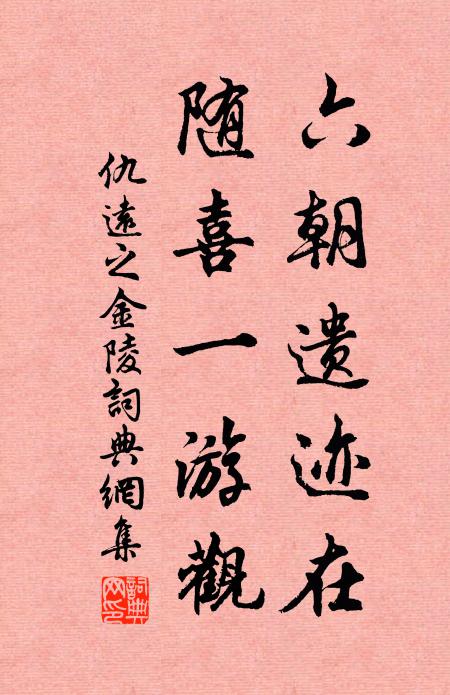 六朝遗迹在
随喜一游觀
仇遠之金陵詞典網集
詞典网印